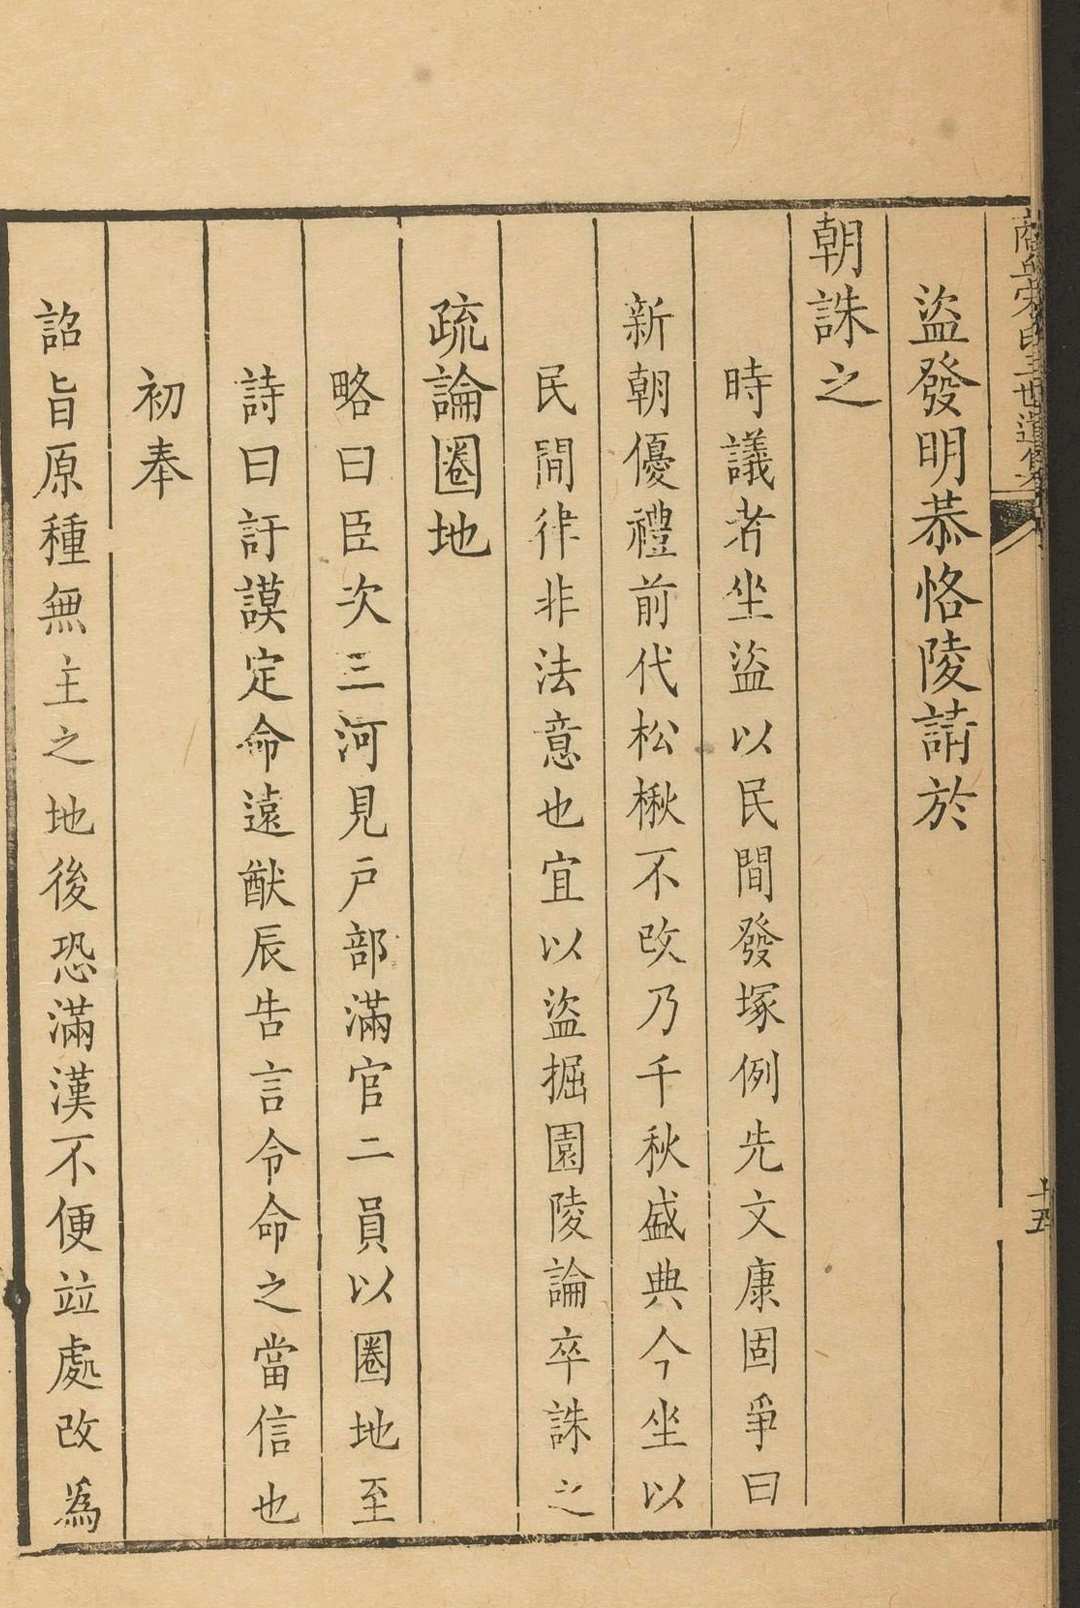 盜發明恭恪陵請於
朝誅之
時議者坐盜以民間發塚例先文康固爭曰
新朝優禮前代松楸不改乃千秋盛典今坐以
民間律非法意也宜以盜掘園陵論卒誅之
疏論圈地
略曰臣次三河見户部滿官二員以圈地至
詩曰訏謨定命遠猷辰告言令命之當信也
初奉
詔旨原種無主之地後恐滿漢不便竝處改為
十五